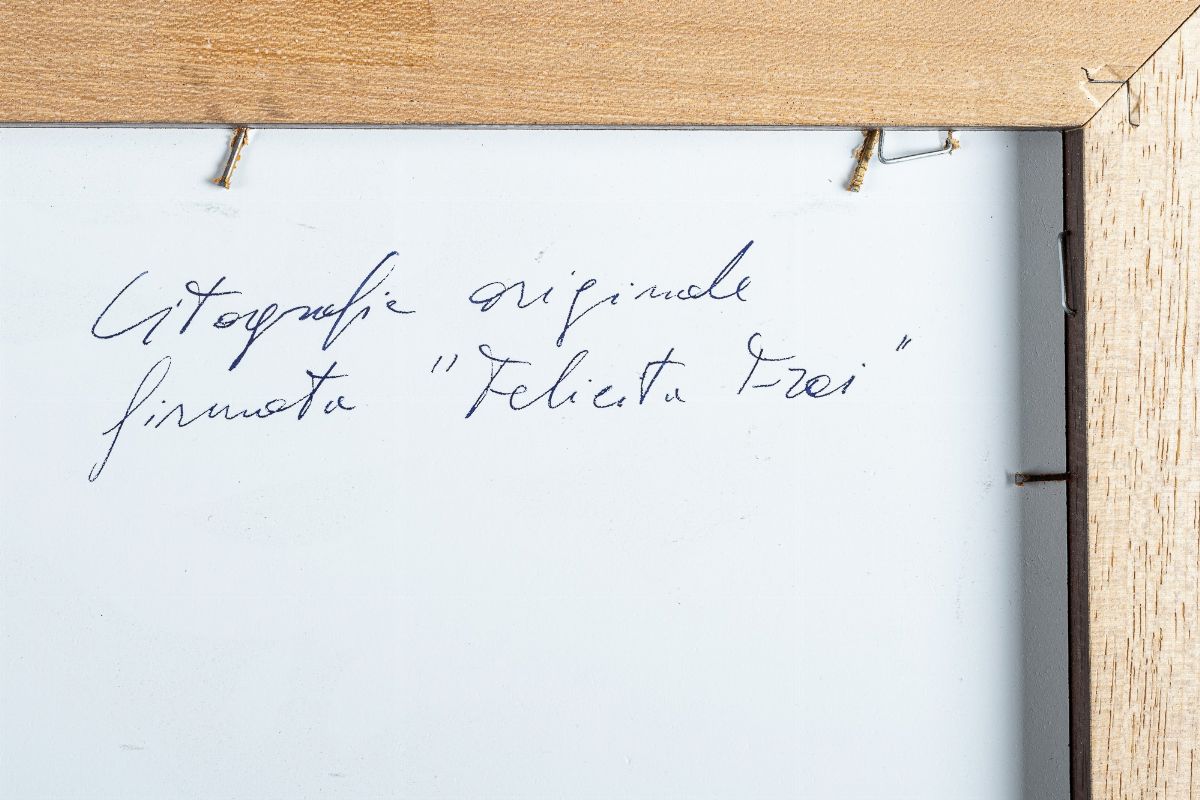 Litografia originale
firmata "Felicita Frai"